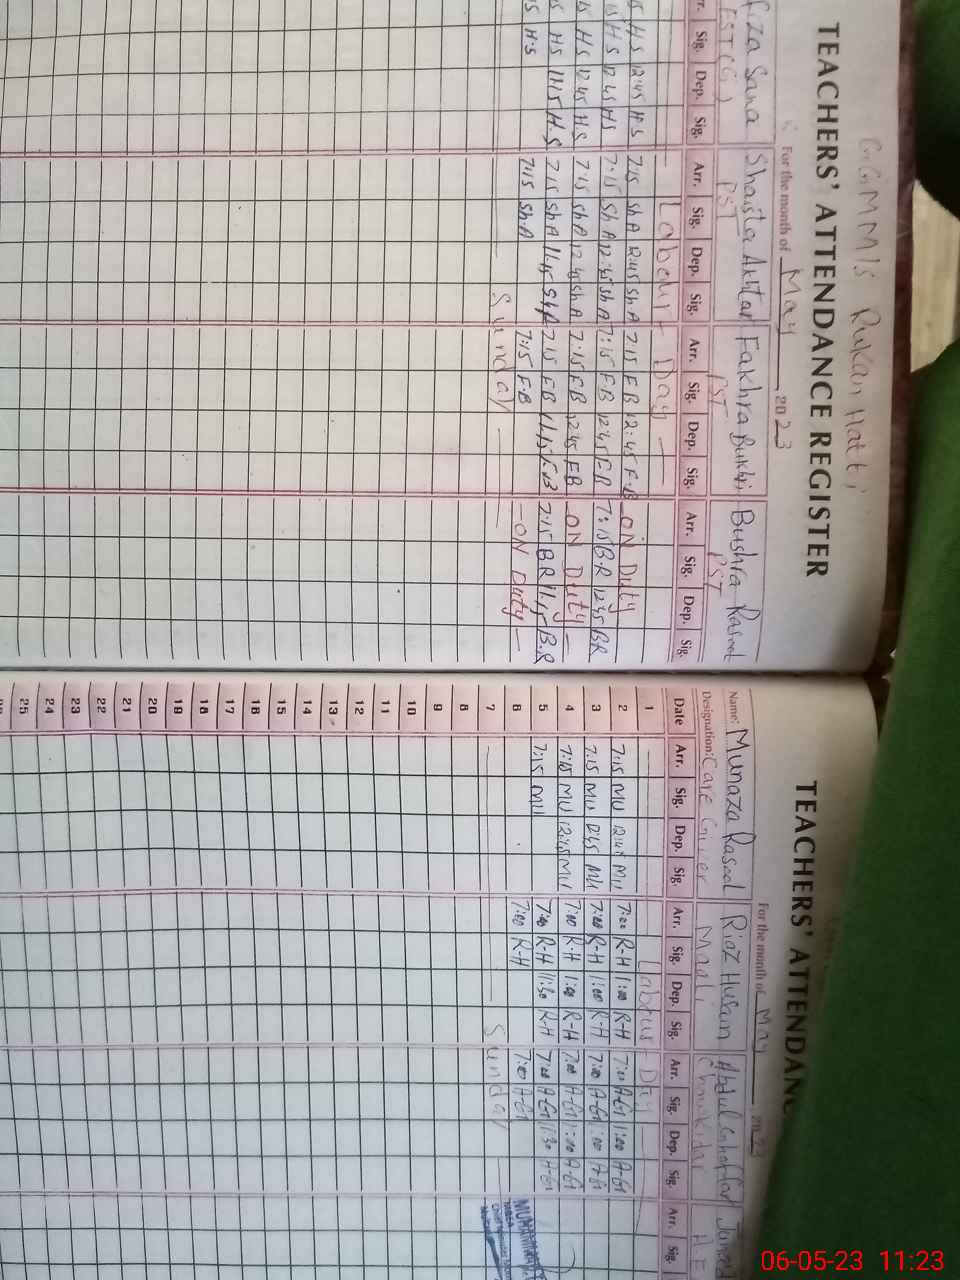 G.G.M.M/S Rukan Hatti
TEACHERS' ATTENDANCE REGISTER
For the month of May 2023
Sana Shaista Akhtar Fakhra Bukhri Bushra Rasool
EST PST PST PST
Arr. Sig. Dep. Sig. Arr. Sig. Dep. Sig. Arr. Sig. Dep. Sig. Arr. Sig. Dep. Sig.
Labour Day
HS 12:45 H.S 7:15 ShA 12:45 ShA 7:15 FB 12:45 F.B ON Duty
HS 12:45 HS 7:15 ShA 12:45 ShA 7:15 FB 12:45 FB 7:15 B.R 12:45 BR
HS 12:45 HS 7:15 ShA 12:45 ShA 7:15 FB 12:45 FB ON Duty
HS 11:15 H.S 7:15 ShA 11:15 ShA 7:15 FB 11:15 F.B 7:15 BR 11:15 B.R
H.S 7:15 ShA 7:15 F.B ON Duty
Sunday
TEACHERS' ATTENDANC
For the month of May 2023
Name: Munaza Rasool Riaz Husain Abdul Ghaffar Junaid
Designation: Care Giver Maali Chowkidar
Date Arr. Sig. Dep. Sig. Arr. Sig. Dep. Sig. Arr. Sig. Dep. Sig. Arr. Sig.
1 Labour Day
2 7:15 MU 12:45 MU 7:00 R-H 11:00 R-H 7:00 A-G 11:00 A-G
3 7:15 MU 12:45 MU 7:00 R-H 11:00 R-H 7:00 A-G 11:00 A-G
4 7:15 MU 12:45 MU 7:00 R-H 11:00 R-H 7:00 A-G 11:00 A-G
5 7:15 MU 7:00 R-H 11:30 R-H 7:00 A-G 11:30 A-G
6 7:00 R-H 7:00 A-G
7 Sunday
8
9
10
11
12
13
14
15
16
17
18
19
20
21
22
23
24
25
06-05-23 11:23